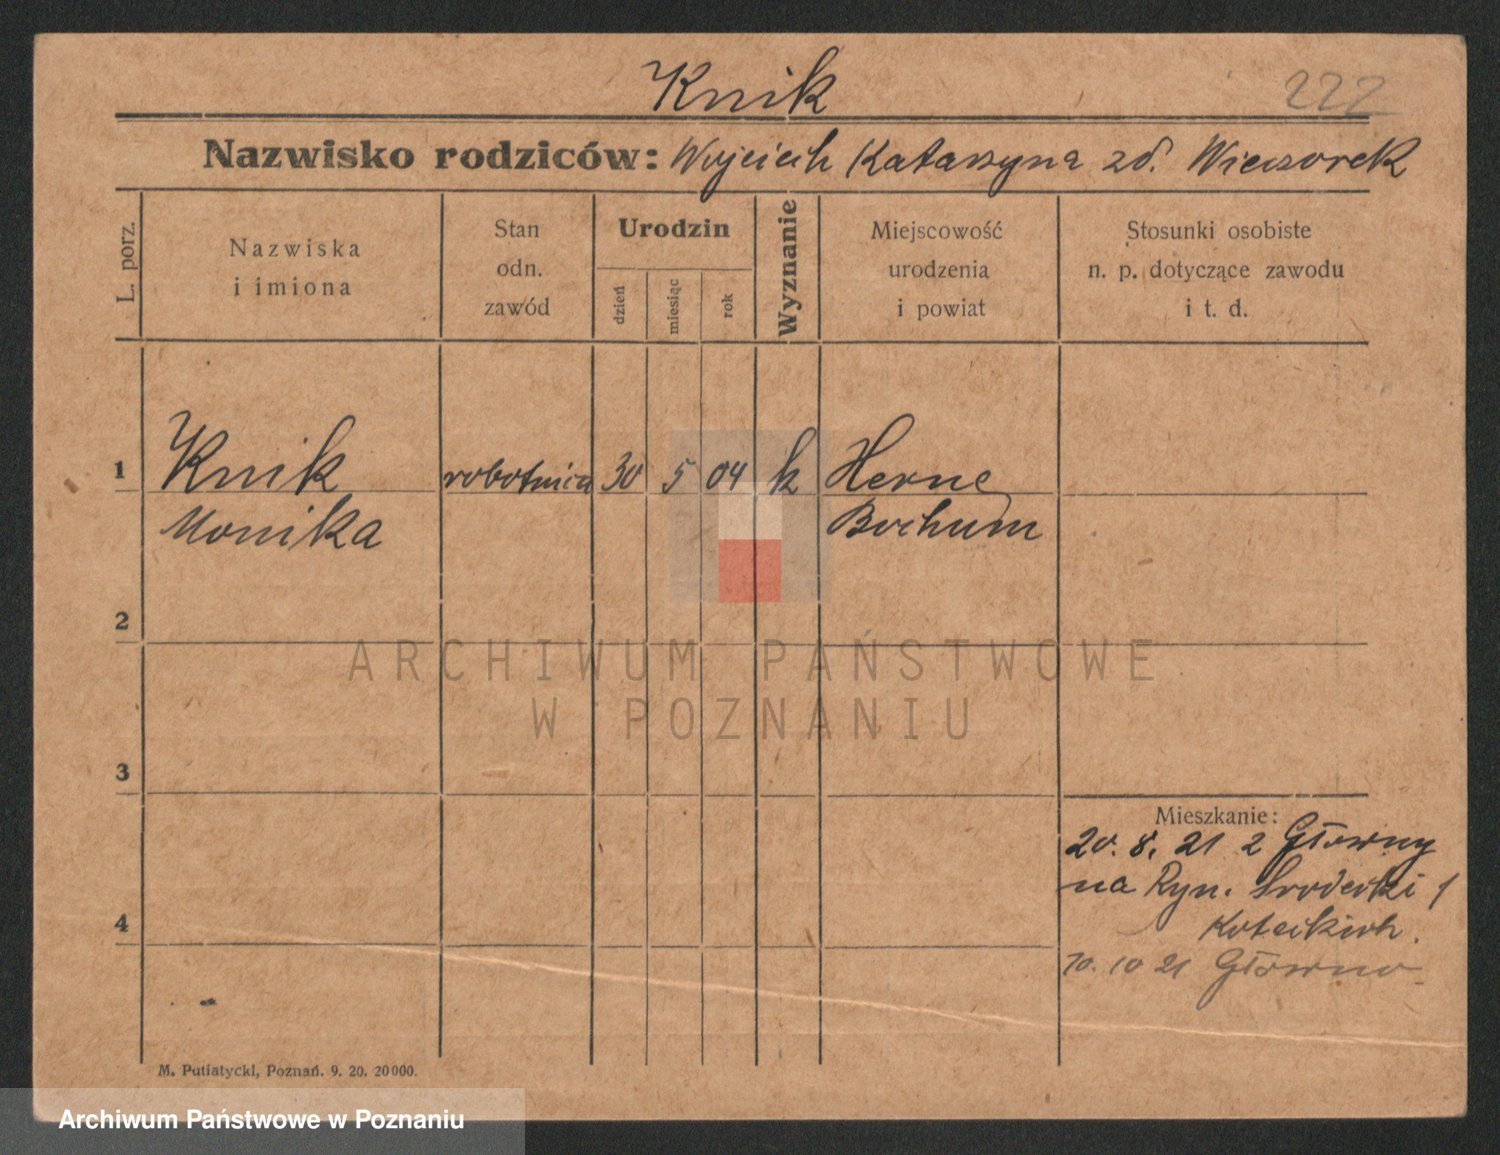 Knik
222
Nazwisko rodziców: Wojciech Katarzyna zd. Wieczorek
L. porz.
Nazwiska
i imiona
Stan
odn.
zawód
Urodzin
dzień
miesiąc
rok
Wyznanie
Miejscowość
urodzenia
i powiat
Stosunki osobiste
n. p. dotyczące zawodu
i t. d.
1
Knik
Monika
robotnica
30
5
04
k
Herne
Bochum
2
ARCHIWUM PAŃSTWOWE
W POZNANIU
3
Mieszkanie:
20. 8. 21 z Główny
na Ryn. Środecki 1
4
10. 10 21 Główno
M. Putiatycki, Poznań. 9. 20. 20000.
Archiwum Państwowe w Poznaniu